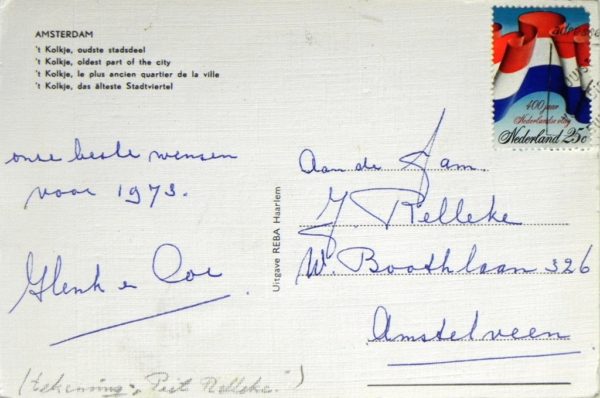 AMSTERDAM
't Kolkje, oudste stadsdeel
't Kolkje, oldest part of the city
't Kolkje, le plus ancien quartier de la ville
't Kolkje, das älteste Stadtviertel
onze beste wensen
voor 1973.
Henk en Coe
(tekening: "Piet Relleke")
Uitgave REBA Haarlem
400 jaar
Nederlandse vlag
Nederland 25c
Aan de Fam.
J. Relleke
W. Boothlaan 326
Amstelveen